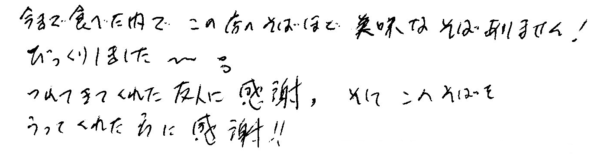 今まで食べた内で この店のそばほど 美味なそばありません!
びっくりしました 〜
つれてきてくれた友人に感謝, そして このそばを
うってくれた方に 感謝!!